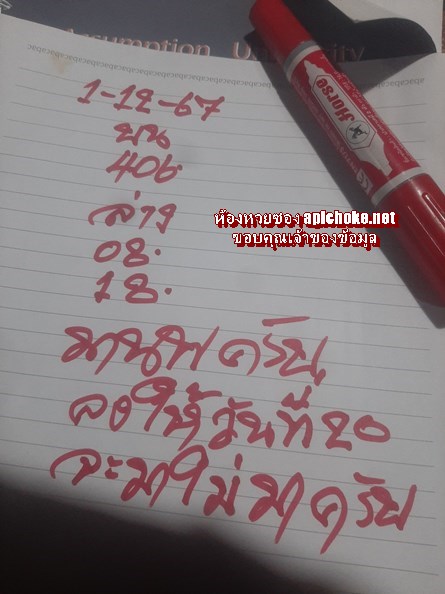 Assumption University
1-12-67
บน
406
ล่าง
08.
18.
ห้องหวยซอง apichoke.net
ขอบคุณเจ้าของข้อมูล
Horse
มานพ ครับ
ลงให้วันที่ 20
จะมาไม่มาครับ